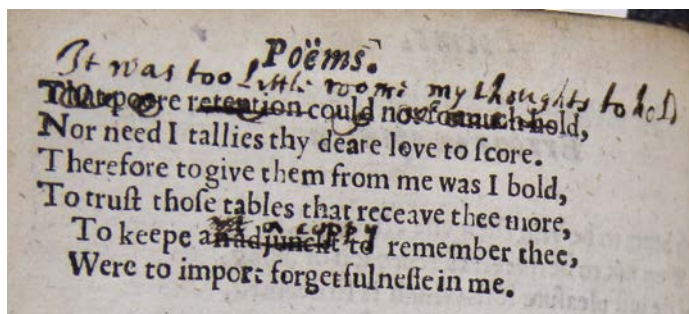 Poëms.
It was too little roome my thoughts to hold
That poore retention could not so much hold,
Nor need I tallies thy deare love to ſcore.
Therefore to give them from me was I bold,
To truſt thoſe tables that receave thee more,
a coppy
To keepe an adjunckt to remember thee,
Were to import forgetfulneſſe in me.